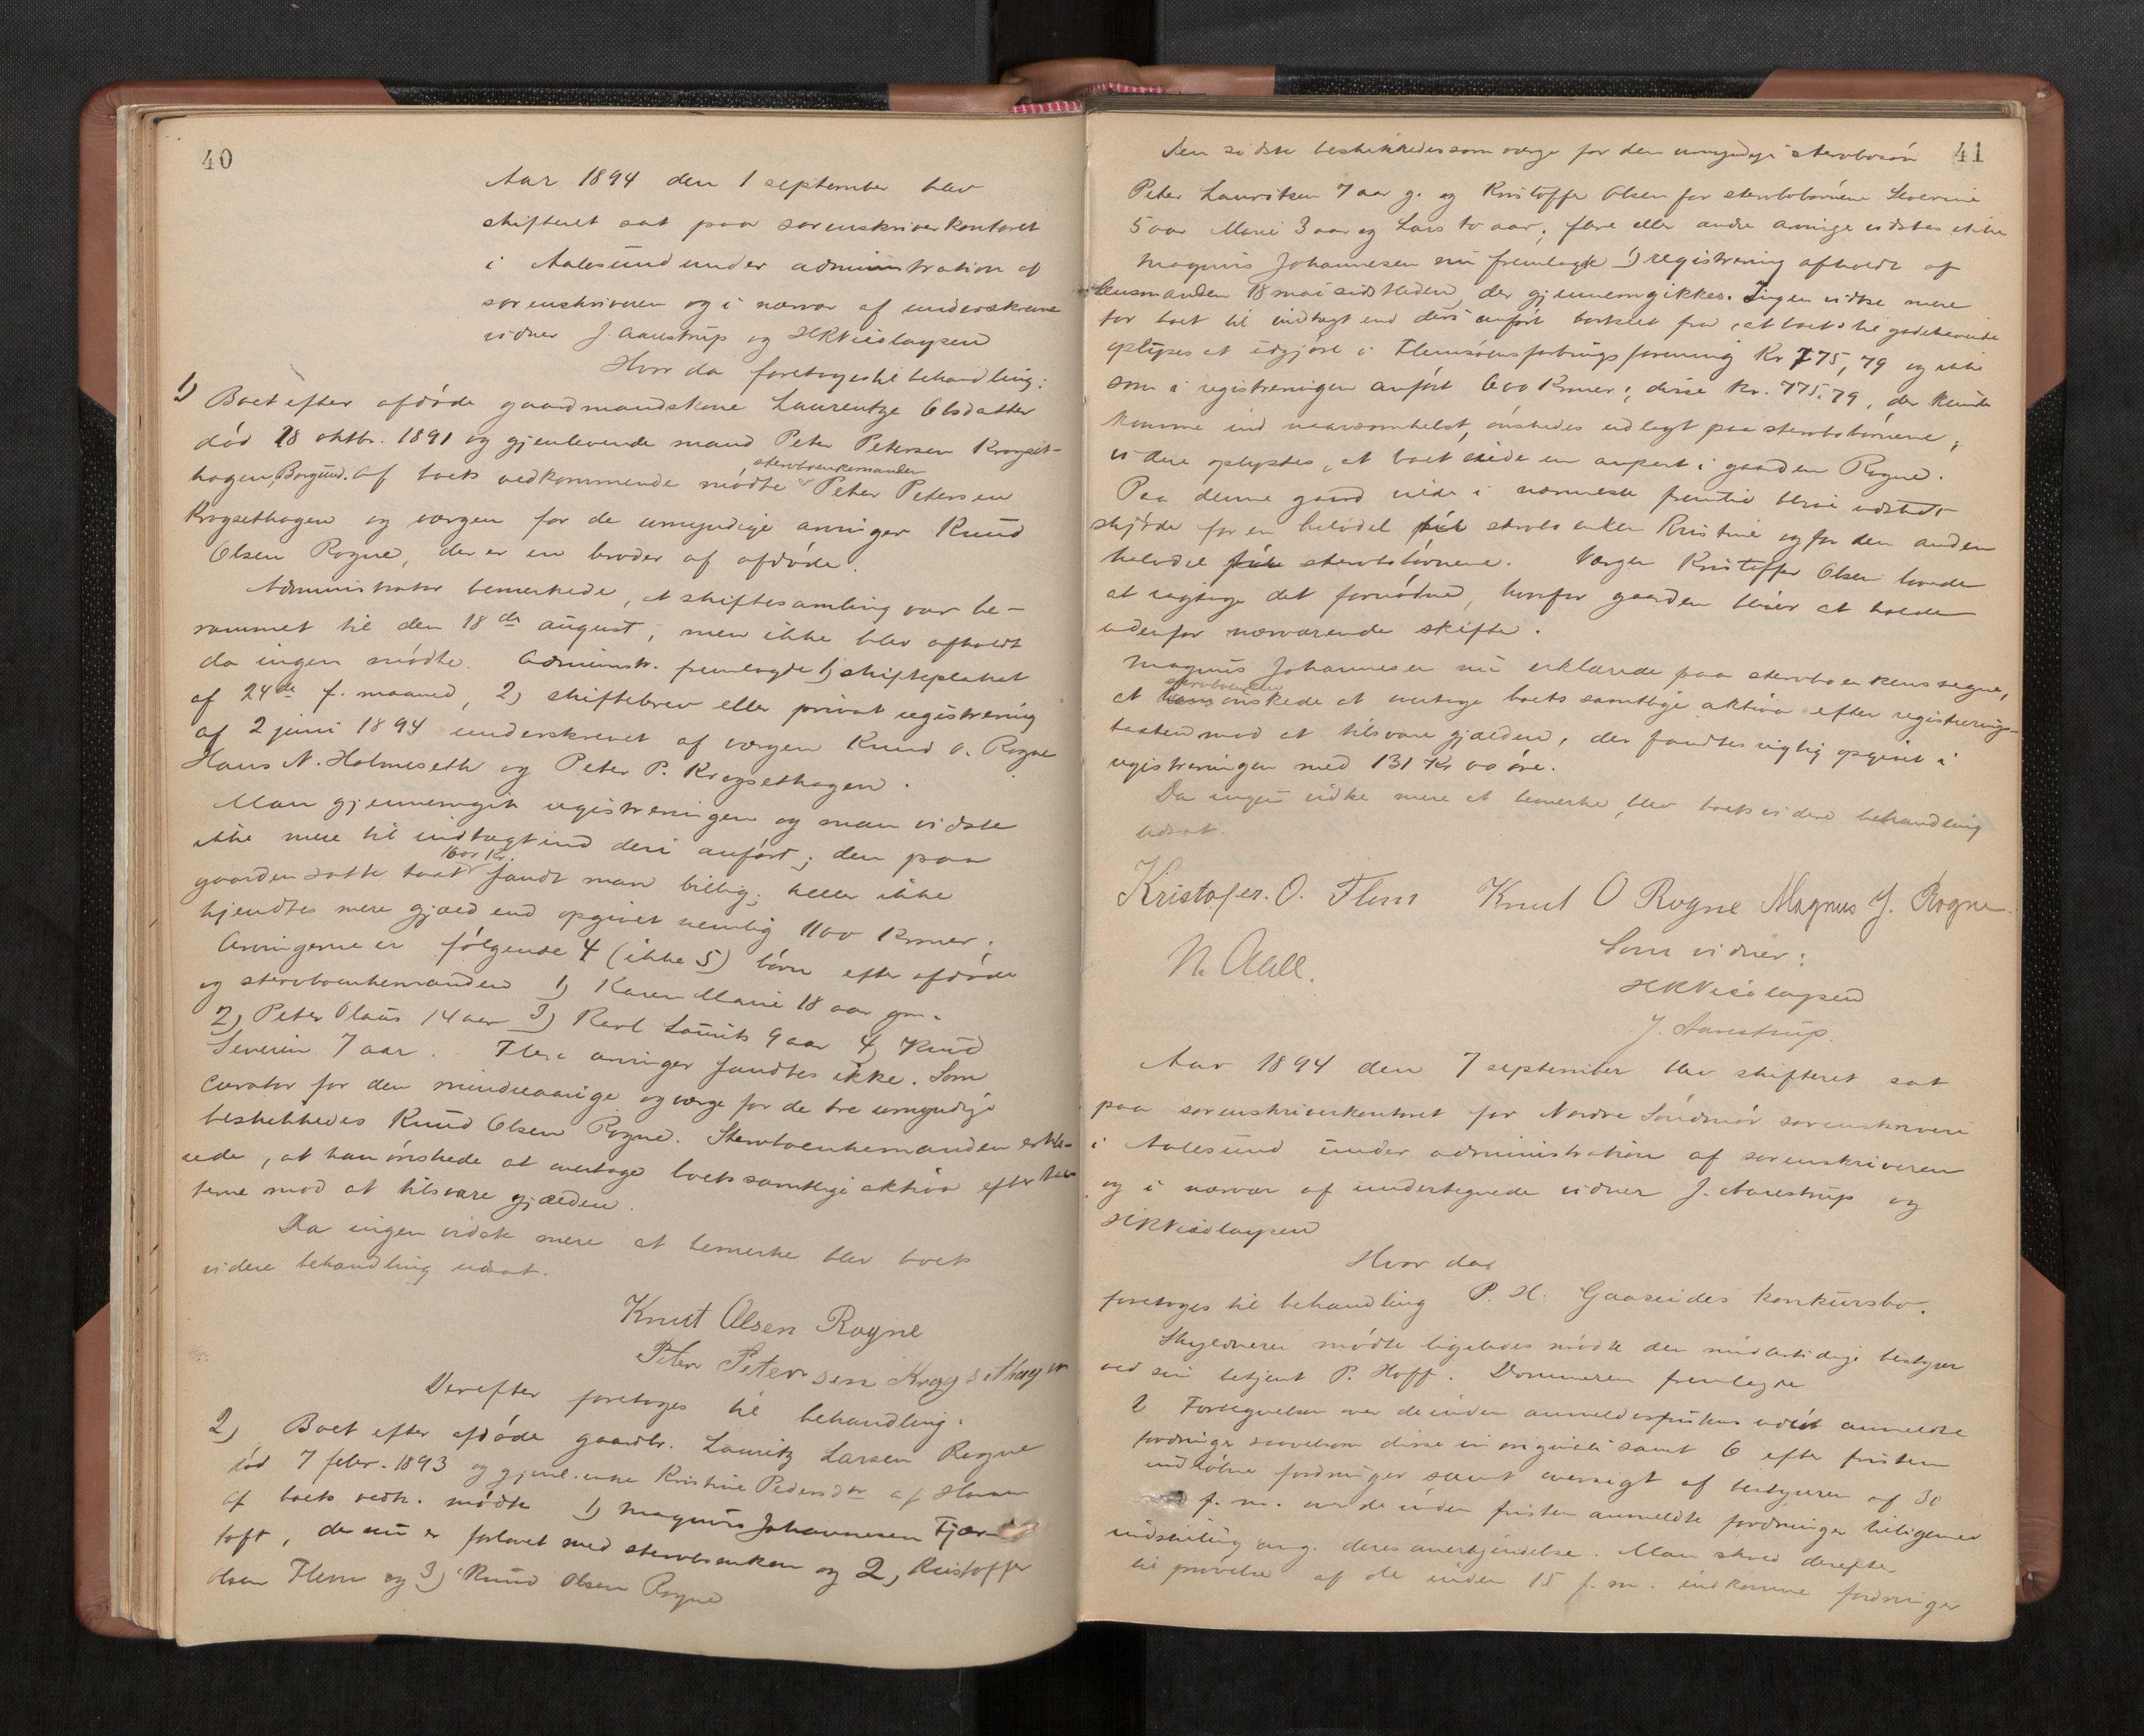 40
Aar 1894 den 1 september blev
skifteret sat paa sorenskriverkontoret
i Aalesund under administration af
sorenskriveren og i nærvær af underskrevne
vidner J. Aarestrup og HKNicolaysen
Hvor da foretoges til behandling:
1) Boet efter afdøde gaardmandskone Laurentze Olsdatter
død 28 oktbr. 1891 og gjenlevende mand Peter Petersen Krogset-
hagen, Borgund. Af boets vedkommende mødte stervboenkemanden Peter Petersen
Krogsethagen og værgen for de umyndige arvinger Knud
Olsen Rogne, der er en broder af afdøde.
Administrator bemerkede, at skiftesamling var be-
rammet til den 18de august, men ikke blev afholdt
da ingen mødte. Administr. fremlagde 1) skifteplakat
af 24de f. maaned, 2) skiftebrev eller privat registrering
af 2 juni 1894 underskrevet af værgen Knud O. Rogne
Hans N. Holmeseth og Peter P. Krogsethagen.
Man gjennemgik registreringen og man vidste
ikke mere til indtægt end deri anført; den paa
gaarden satte taxt 1600 Kr. fandt man billig; heller ikke
kjendtes mere gjæld end opgivet nemlig 1100 Kroner.
Arvingerne er følgende 4 (ikke 5) børn efter afdøde
og stervboenkemanden 1) Karen Marie 18 aar gm.
2) Peter Olaus 14 aar 3) Karl Laurits 9 aar 4) Knud
Severin 7 aar. Flere arvinger fandtes ikke. Som
curator for den mindreaarige og værge for de tre umyndige
beskikkedes Knud Olsen Rogne. Stervboenkemanden erklæ-
rede, at han ønskede at overtage boets samtlige aktiva efter tax-
terne mod at tilsvare gjælden.
Da ingen vidste mere at bemerke blev boets
videre behandling udsat.
Knut Olsen Rogne
Peter Petersen Krogsethagen
Derefter foretoges til behandling:
2) Boet efter afdøde gaardbr. Lauritz Larsen Rogne
død 7 febr. 1893 og gjenl. enke Kristine Pedersdtr af
Af boets vedk. mødte 1) Magnus Johannesen Fjær-
toft, der nu er forlovet med stervboenken og 2) Kristoffer
Olsen Flem og 3) Knud Olsen Rogne
41
Den sidste beskikkedes som værge for den umyndige stervbosøn
Peter Lauritsen 7 aar g. og Kristoffer Olsen for stervbobørnene Severine
5 aar Marie 3 aar og Lars to aar; flere eller andre arvinge vidstes ikke
Magnus Johannesen nu fremlagde 1) registrering afholdt af
lensmanden 18 mai sidstleden, der gjennemgikkes. Ingen vidste mere
for boet til indtægt end deri anført bortset fra, at boets tilgodehavende
oplystes at udgjøre i Flemsøens forbrugsforening Kr 775,79 og ikke
som i registreringen anført 600 Kroner; disse kr. 775,79, der kunde
komme ind naarsomhelst, ønskedes udlagt paa stervbobørnene;
videre oplystes, at boet eiede en anpart i gaarden Rogne.
Paa denne gaard vilde i nærmeste fremtid blive udstedt
skjøde for en halvdel til stervboenken Kristine og for den anden
halvdel til stervbobørnene. Værgen Kristoffer Olsen lovede
at iagttage det fornødne, hvorfor gaarden bliver at holde
udenfor nærværende skifte.
Magnus Johannesen nu erklærede paa stervboenkens vegne,
at stervboenken ønskede at overtage boets samtlige aktiva efter registrerings-
taxten mod at tilsvare gjælden, der fandtes rigtig opgivet i
registreringen med 131 Kr 00 øre.
Da ingen vidste mere at bemerke, blev boets videre behandling
udsat.
Kristofer. O. Flem Knut O Rogne Magnus J. Rogne.
N. Aall.
Som vidner:
HKNicolaysen
J. Aarestrup.
Aar 1894 den 7 september blev skifteret sat
paa sorenskriverkontoret for Nordre Søndmør sorenskriveri
i Aalesund under administration af sorenskriveren
og i nærvær af undertegnede vidner J. Aarestrup og
HKNicolaysen
Hvor da
foretoges til behandling P. H. Gaaseides konkursbo.
Skyldneren mødte ligeledes mødte den midlertidige bestyrer
ved sin betjent P. Hoff. Dommeren fremlagde
Fortegnelse over de inden anmeldelsesfristens udløb anmeldte
fordringer saavelsom disse in originali samt 6 efter fristen
indløbne fordringer samt oversigt af bestyreren af 30
f. m. over de inden fristen anmeldte fordringer tilligemed
indstilling ang. deres anerkjendelse. Man skred derefter
til prøvelse af de inden 15 f. m. indkomne fordringer